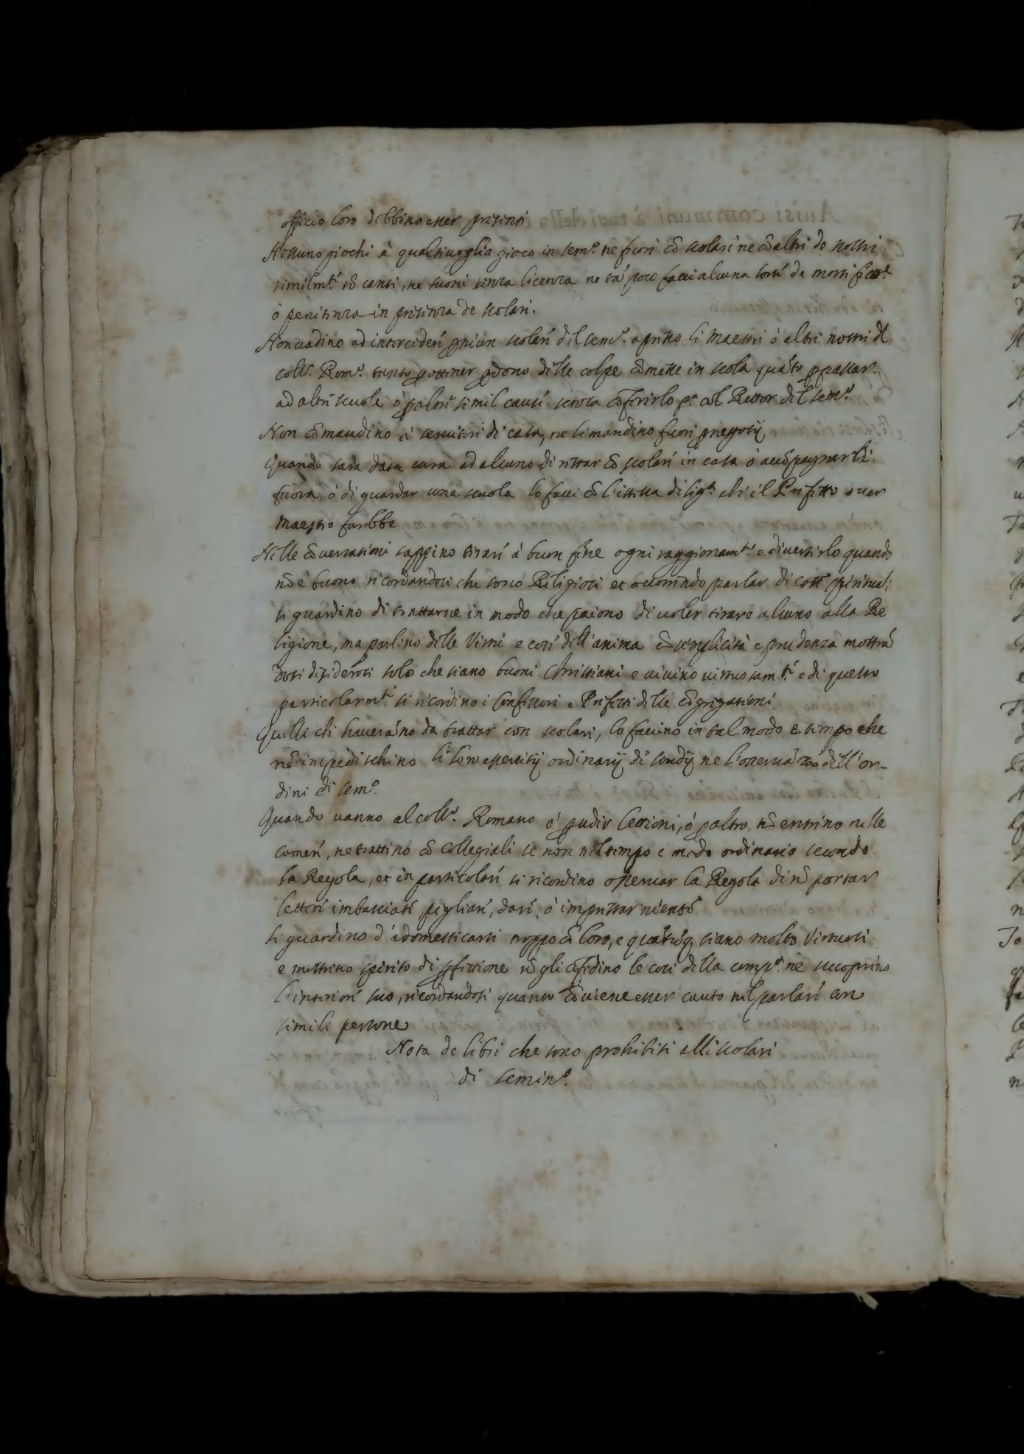 officio loro debbino esser presenti
Nessuno giochi à qualsivoglia gioco in sem.º ne fuori cō scolari ne cō altri de nostri
similm.te nō canti, ne suoni senza licenza ne tā poco facci alcuna sorte de mortific.ne
ò penitenza in presenza de scolari.
Non vadino ad interceder p niun scolari del sem.º apresso li Maestri ò altri nostri del
coll.º Rom.º p ottener pdono delle colpe cōmesse in scola quāto p passar
ad altri scuole ò p altri simil causi senza cōferirlo p.ª col Rettor del sem.º
Non cōmandino à servitori di casa, ne li mandino fuori p negotij
Quando sarà data cura ad alcuno di restar cō scolari in casa ò accōpagnarli
fuora, ò di guardar una scuola lo facci cō l'istessa dilig.ª che il Prefetto over
Maestro farebbe
Nelle cōversationi sappino tirare à buon fine ogni raggionam.to e divertirlo quando
nō è buono ricordandosi che sono Religiosi et occorrendo parlar di cose spirituali
si guardino di trattarne in modo che paiono di voler tirare alcuno alla Re
ligione, ma parlino delle Virtù e cose dell'anima cō semplicità e prudenza mostrā
dosi desiderosi solo che siano buoni Christiani e vivino virtuosam.te e di questo
particolarm.te si ricordino i Confessori e Prefetti delle Cōgregationi
Quelli che haverāno da trattar con scolari, lo faccino in tal modo e tempo che
nō impedischino li loro essercitij ordinarij de studij ne l'osservāza dell'or-
dini di sem.º
Quando vanno al coll.º Romano ò p udir lettioni, ò p altro nō entrino nelle
camere, ne trattino cō Collegiali se non nel tempo e modo ordinario secondo
la Regola, et in particolare si ricordino osservar la Regola di nō portar
lettere imbasciate pigliare, dare, ò imprestar niente
Si guardino d'adomesticarsi troppo cō loro, e quātūq; siano molto Virtuosi
e mostrino spirito di pfettione nō gli cōfidino le cose della comp.ª ne scoprino
l'interiore suo, ricordandosi quanto cōviene esser cauto nel parlare con
simili persone
Nota de libri che sono prohibiti alli scolari
di semin.º